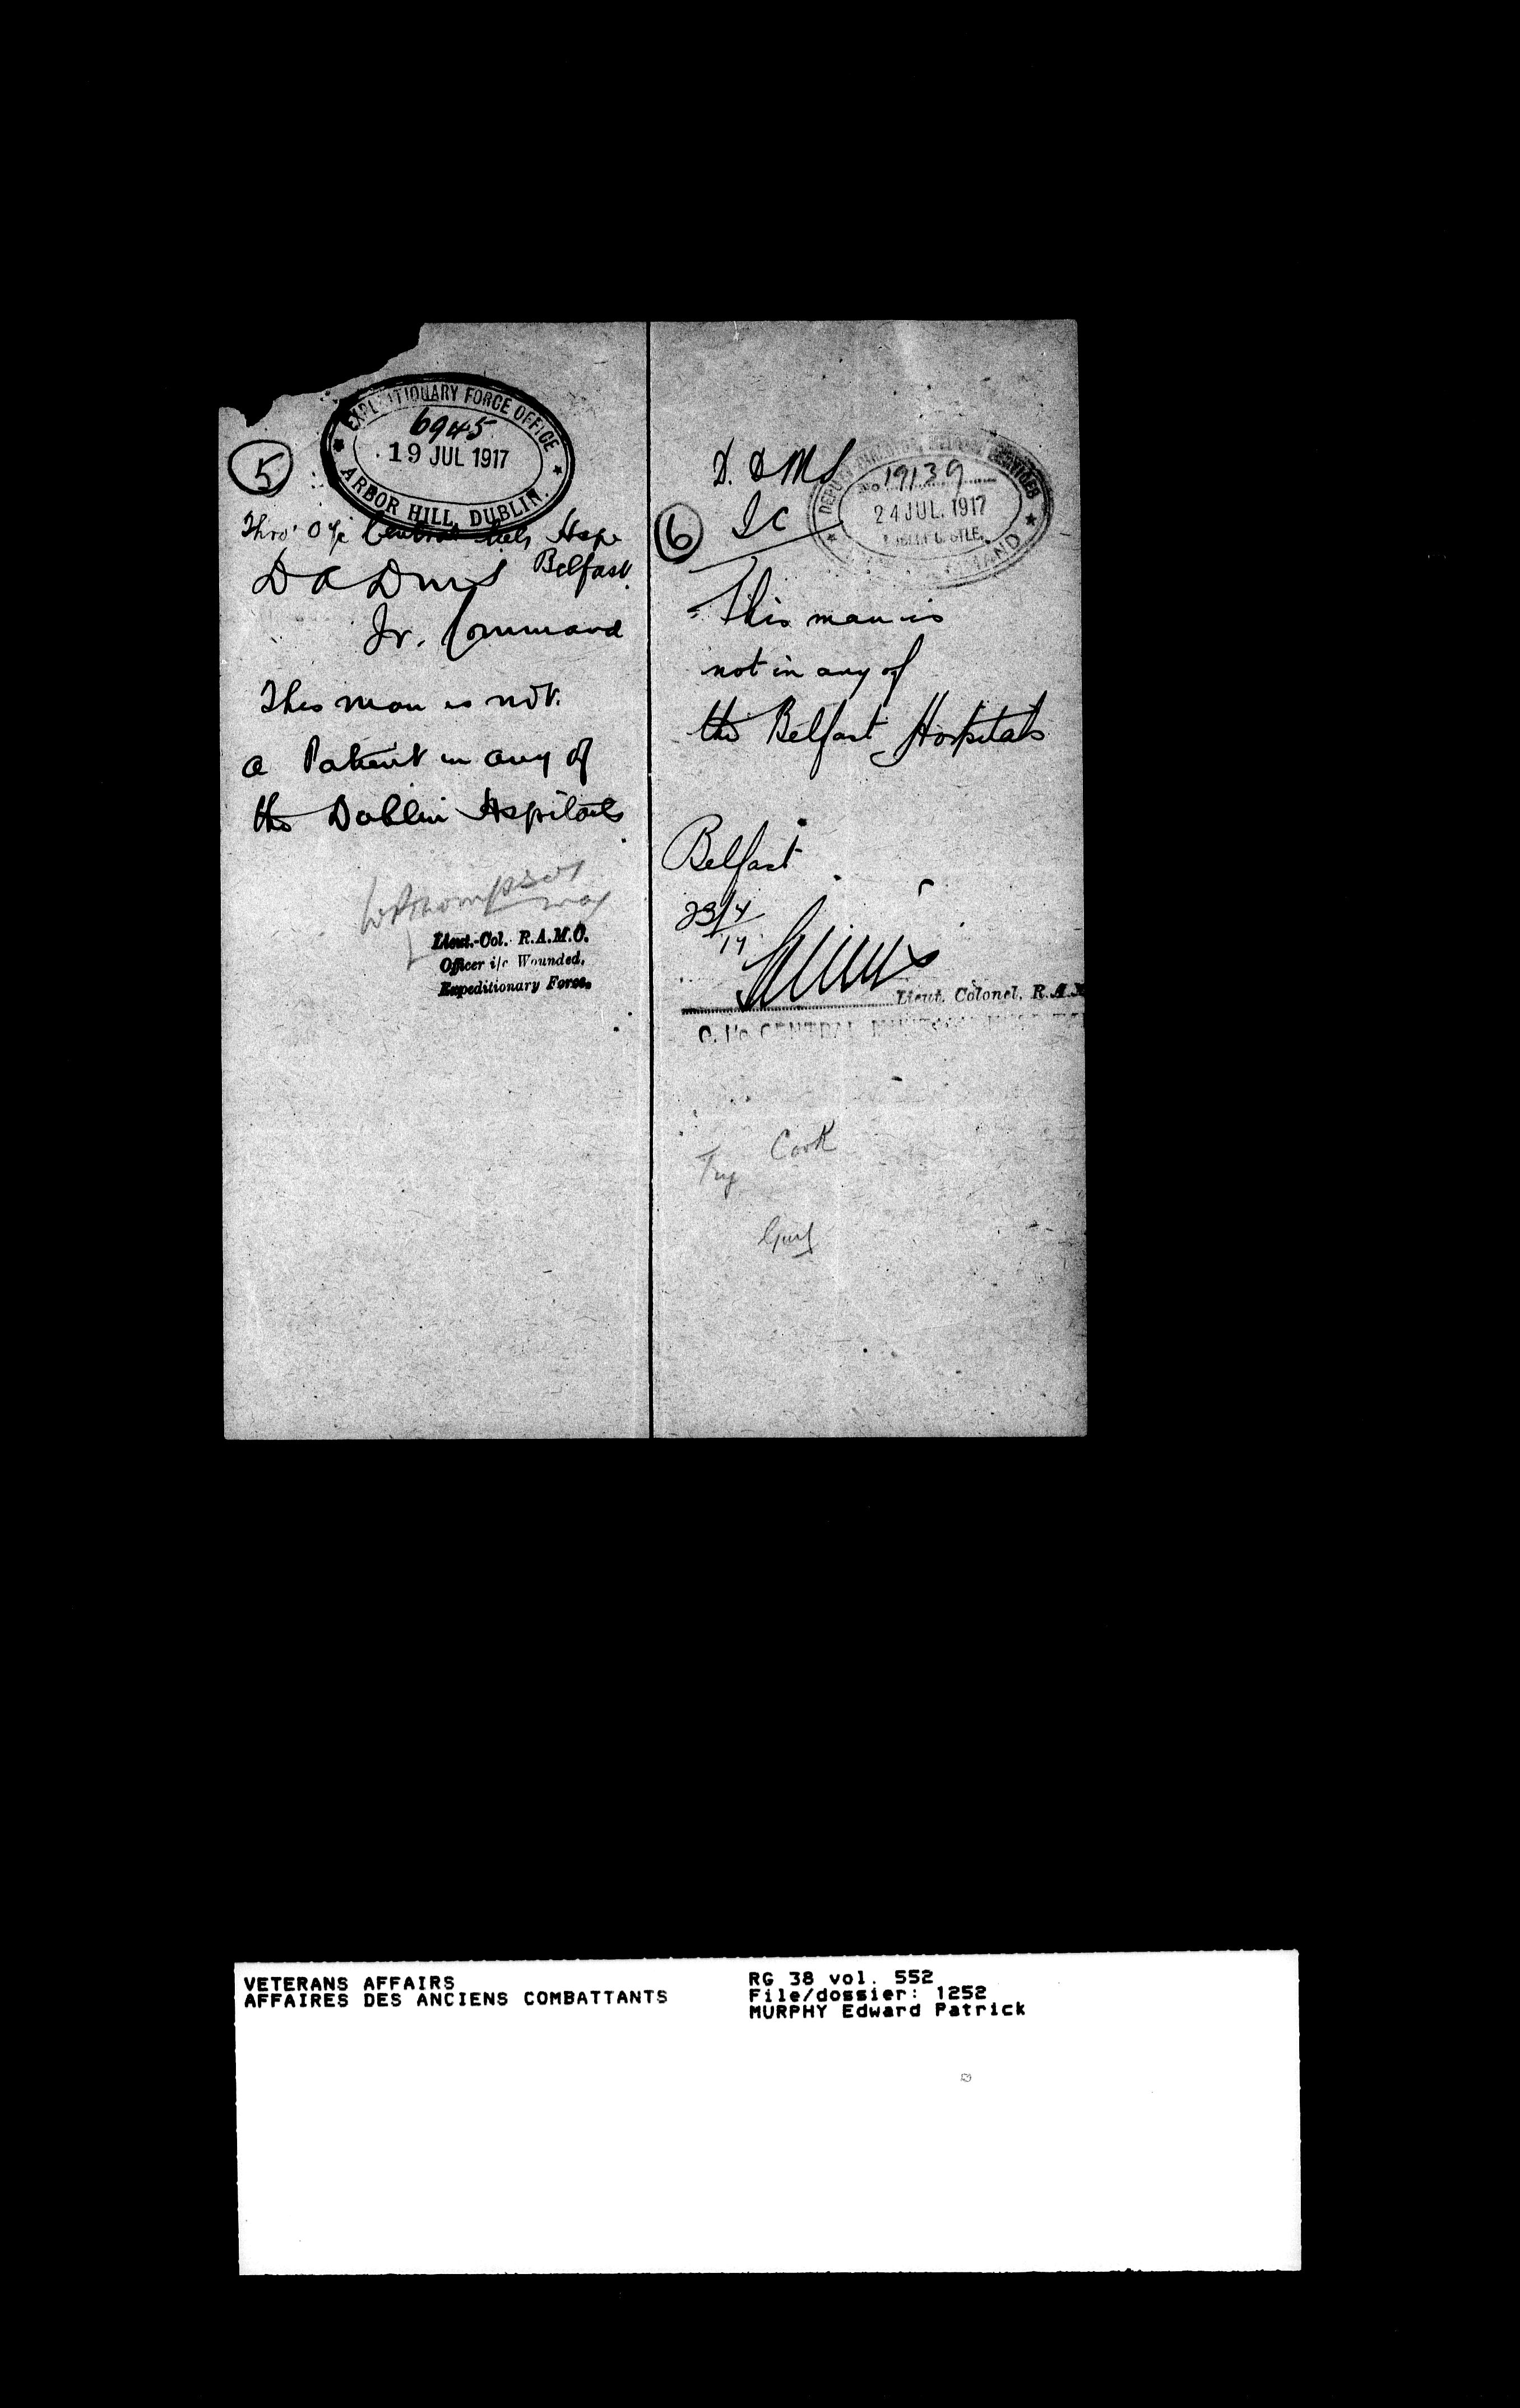 EXPEDITIONARY FORCE OFFICE
6945
19 JUL 1917
ARBOR HILL, DUBLIN.
5
Thro' O i/c Central Hosp
Belfast
DADMS
Ir. Command
This man is not
a Patient in any of
the Dublin Hospitals
Lieut.-Col. R.A.M.C.
Officer i/c Wounded,
Expeditionary Force.
D. DMS
IC
DEPUTY DIRECTOR MEDICAL SERVICES
No 19139
24 JUL. 1917
COMMAND
6
This man is
not in any of
the Belfast Hospitals
Belfast
23/7/17
Lieut. Colonel, R.A.M
O. i/c CENTRAL
Try Cork
VETERANS AFFAIRS
AFFAIRES DES ANCIENS COMBATTANTS
RG 38 vol. 552
File/dossier: 1252
MURPHY Edward Patrick